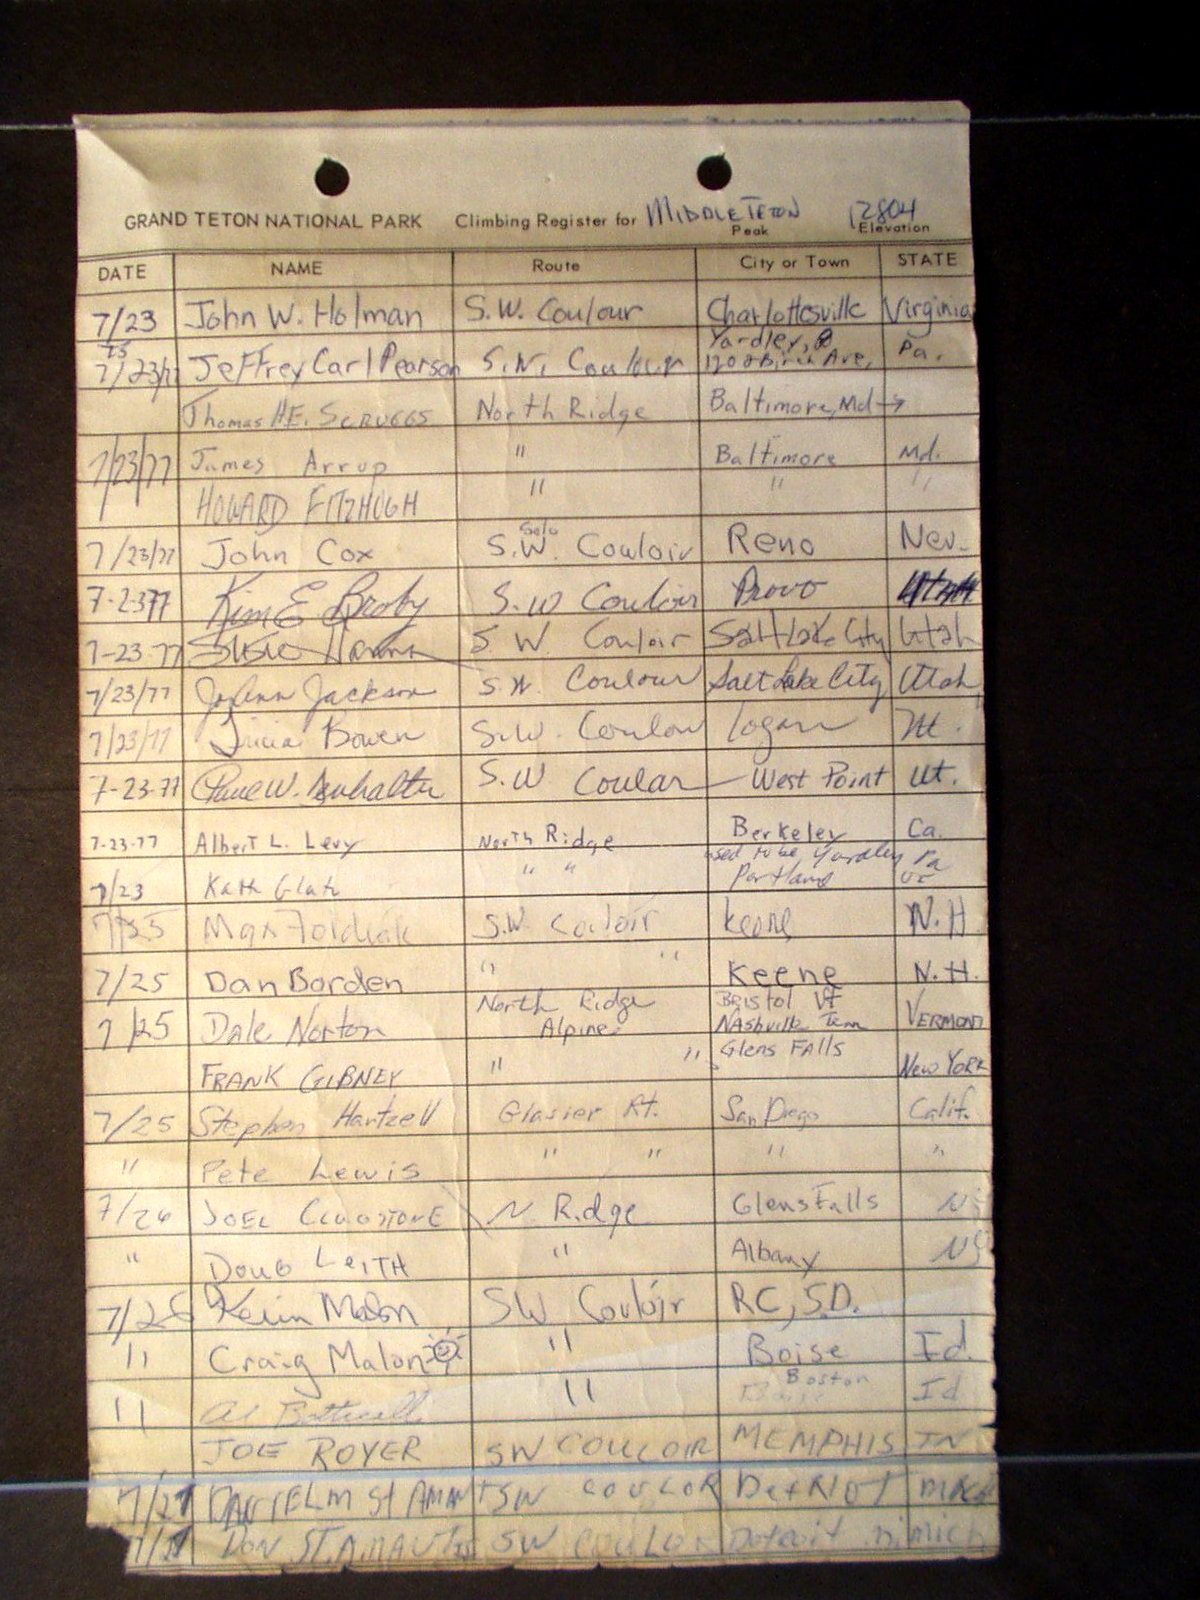 GRAND TETON NATIONAL PARK Climbing Register for MIDDLE TETON 12804
Peak Elevation
DATE NAME Route City or Town STATE
7/23 John W. Holman S.W. Coulour Charlottesville Virginia
7/23/77 Jeffrey Carl Pearson S.W. Coulour Yardley, 1202 Birch Ave, Pa.
Thomas H.E. SCRUGGS North Ridge Baltimore, Md →
7/23/77 James Arrup " Baltimore Md.
HOWARD FITZHUGH " " "
7/23/77 John Cox Solo S.W. Couloir Reno Nev.
7-23-77 Kim E S.W Couloir Provo Utah
7-23-77 S W Couloir Salt Lake City Utah
7/23/77 JoAnn Jackson S.W. Coulour Salt Lake City Utah
7/23/77 Tricia Bowen S.W. Coulou Logan Ut.
7-23-77 Paul W. S.W Coular West Point Ut.
7-23-77 Albert L. Levy North Ridge Berkeley Ca.
used to be Yardley Pa
7/23 Kath " " Portland or
7/25 Max S.W. Couloir Keene N.H
7/25 Dan Borden " " Keene N.H.
7/25 Dale Norton North Ridge Alpine Bristol Vt Nashville Tenn VERMONT
FRANK GIBNEY " " Glens FAlls New YORK
7/25 Stephen Hartzell Glasier Rt. San Diego Calif.
" Pete Lewis " " " "
7/26 JOEL N. Ridge Glens Falls NY
" Doug LeITH " Albany NY
7/26 Kevin Malon SW Couloir RC, S.D.
11 Craig Malon " Boise Id.
11 Al " Boston Id
JOE ROYER SW COULOIR MEMPHIS TN
7/27 St AMANT SW COULOR DetRIOT mich
7/27 DON ST. SW COULOR Detroit mich